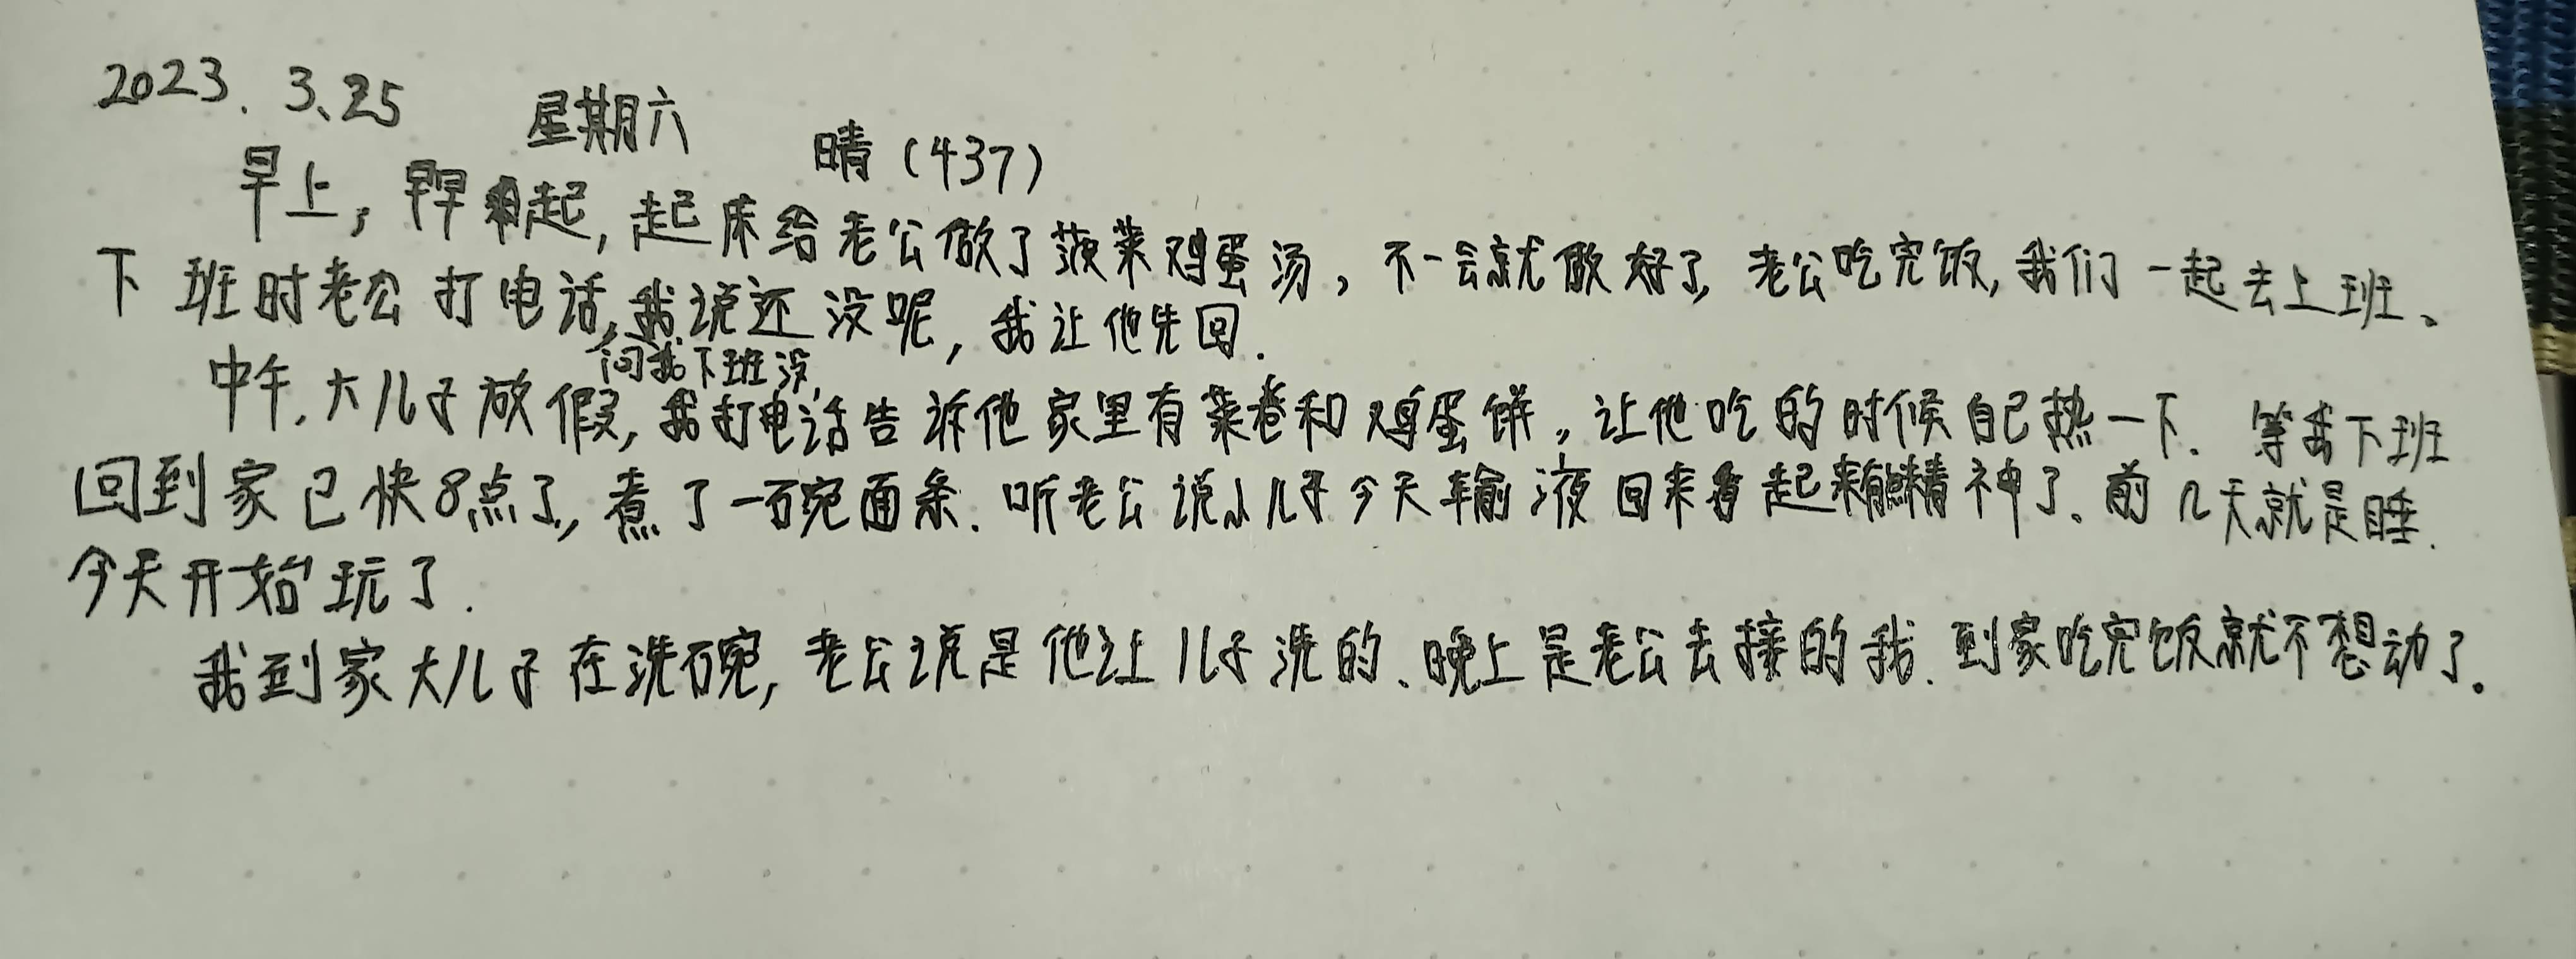 2023.3.25 星期六 晴(437)
早上,早早起,起床给老公做了菠菜鸡蛋汤,不一会就做好了,老公吃完饭,我们一起去上班、
下班时老公打电话,我说还没呢,我让他先回.
问我下班没,
中午,大儿子放假,我打电话告诉他家里有菜卷和鸡蛋饼,让他吃的时候自己热一下.等我下班
回到家已快8点了,煮了一碗面条.听老公说小儿子今天输液回来看起来有点精神了、前几天就是睡.
今天开始玩了.
我到家大儿子在洗碗,老公说是他让儿子洗的、晚上是老公去接的我.到家吃完饭就不想动了。